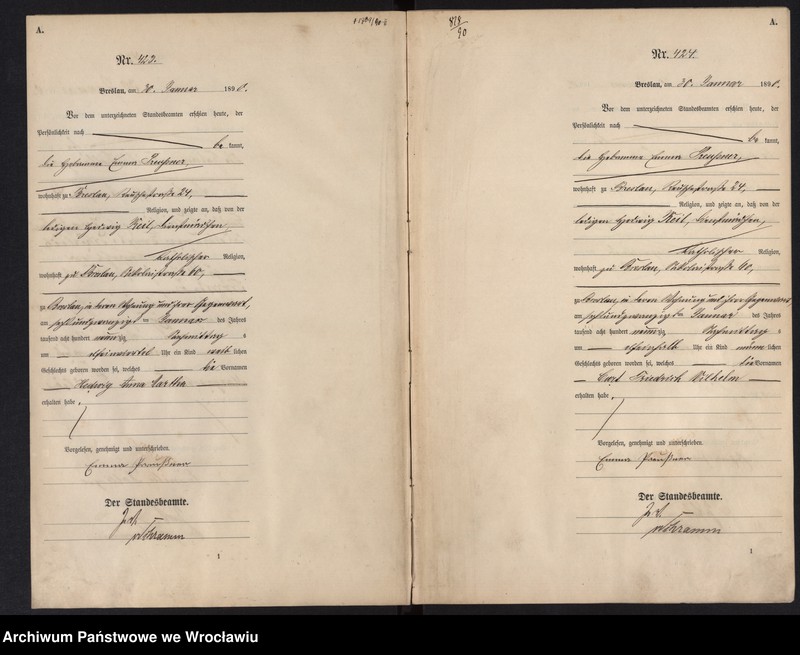 A.
Nr. 423.
Breslau, am 30. Januar 1890.
Vor dem unterzeichneten Standesbeamten erschien heute, der
Persönlichkeit nach
be kannt,
die Hebamme Emma
wohnhaft zu Breslau, Reuschestraße 24,
Religion, und zeigte an, daß von der
ledigen Hedwig Keil,
katholischer Religion,
wohnhaft zu Breslau, Nikolaistraße 60,
zu Breslau, in deren Wohnung und ihrer Gegenwart,
am sechsundzwanzigsten Januar des Jahres
tausend acht hundert neunzig Nachmittag s
um Uhr ein Kind weib lichen
Geschlechts geboren worden sei, welches die Vornamen
Hedwig Anna Martha
erhalten habe.
Vorgelesen, genehmigt und unterschrieben.
Emma
Der Standesbeamte.
Schramm
1
818/90
A.
Nr. 424.
Breslau, am 30. Januar 1890.
Vor dem unterzeichneten Standesbeamten erschien heute, der
Persönlichkeit nach
be kannt,
die Hebamme Emma
wohnhaft zu Breslau, Reuschestraße 24,
Religion, und zeigte an, daß von der
ledigen Hedwig Keil,
katholischer Religion,
wohnhaft zu Breslau, Nikolaistraße 60,
zu Breslau, in deren Wohnung und ihrer Gegenwart,
am sechsundzwanzigsten Januar des Jahres
tausend acht hundert neunzig Nachmittag s
um Uhr ein Kind männ lichen
Geschlechts geboren worden sei, welches die Vornamen
Carl Friedrich Wilhelm
erhalten habe.
Vorgelesen, genehmigt und unterschrieben.
Emma
Der Standesbeamte.
Schramm
1
Archiwum Państwowe we Wrocławiu